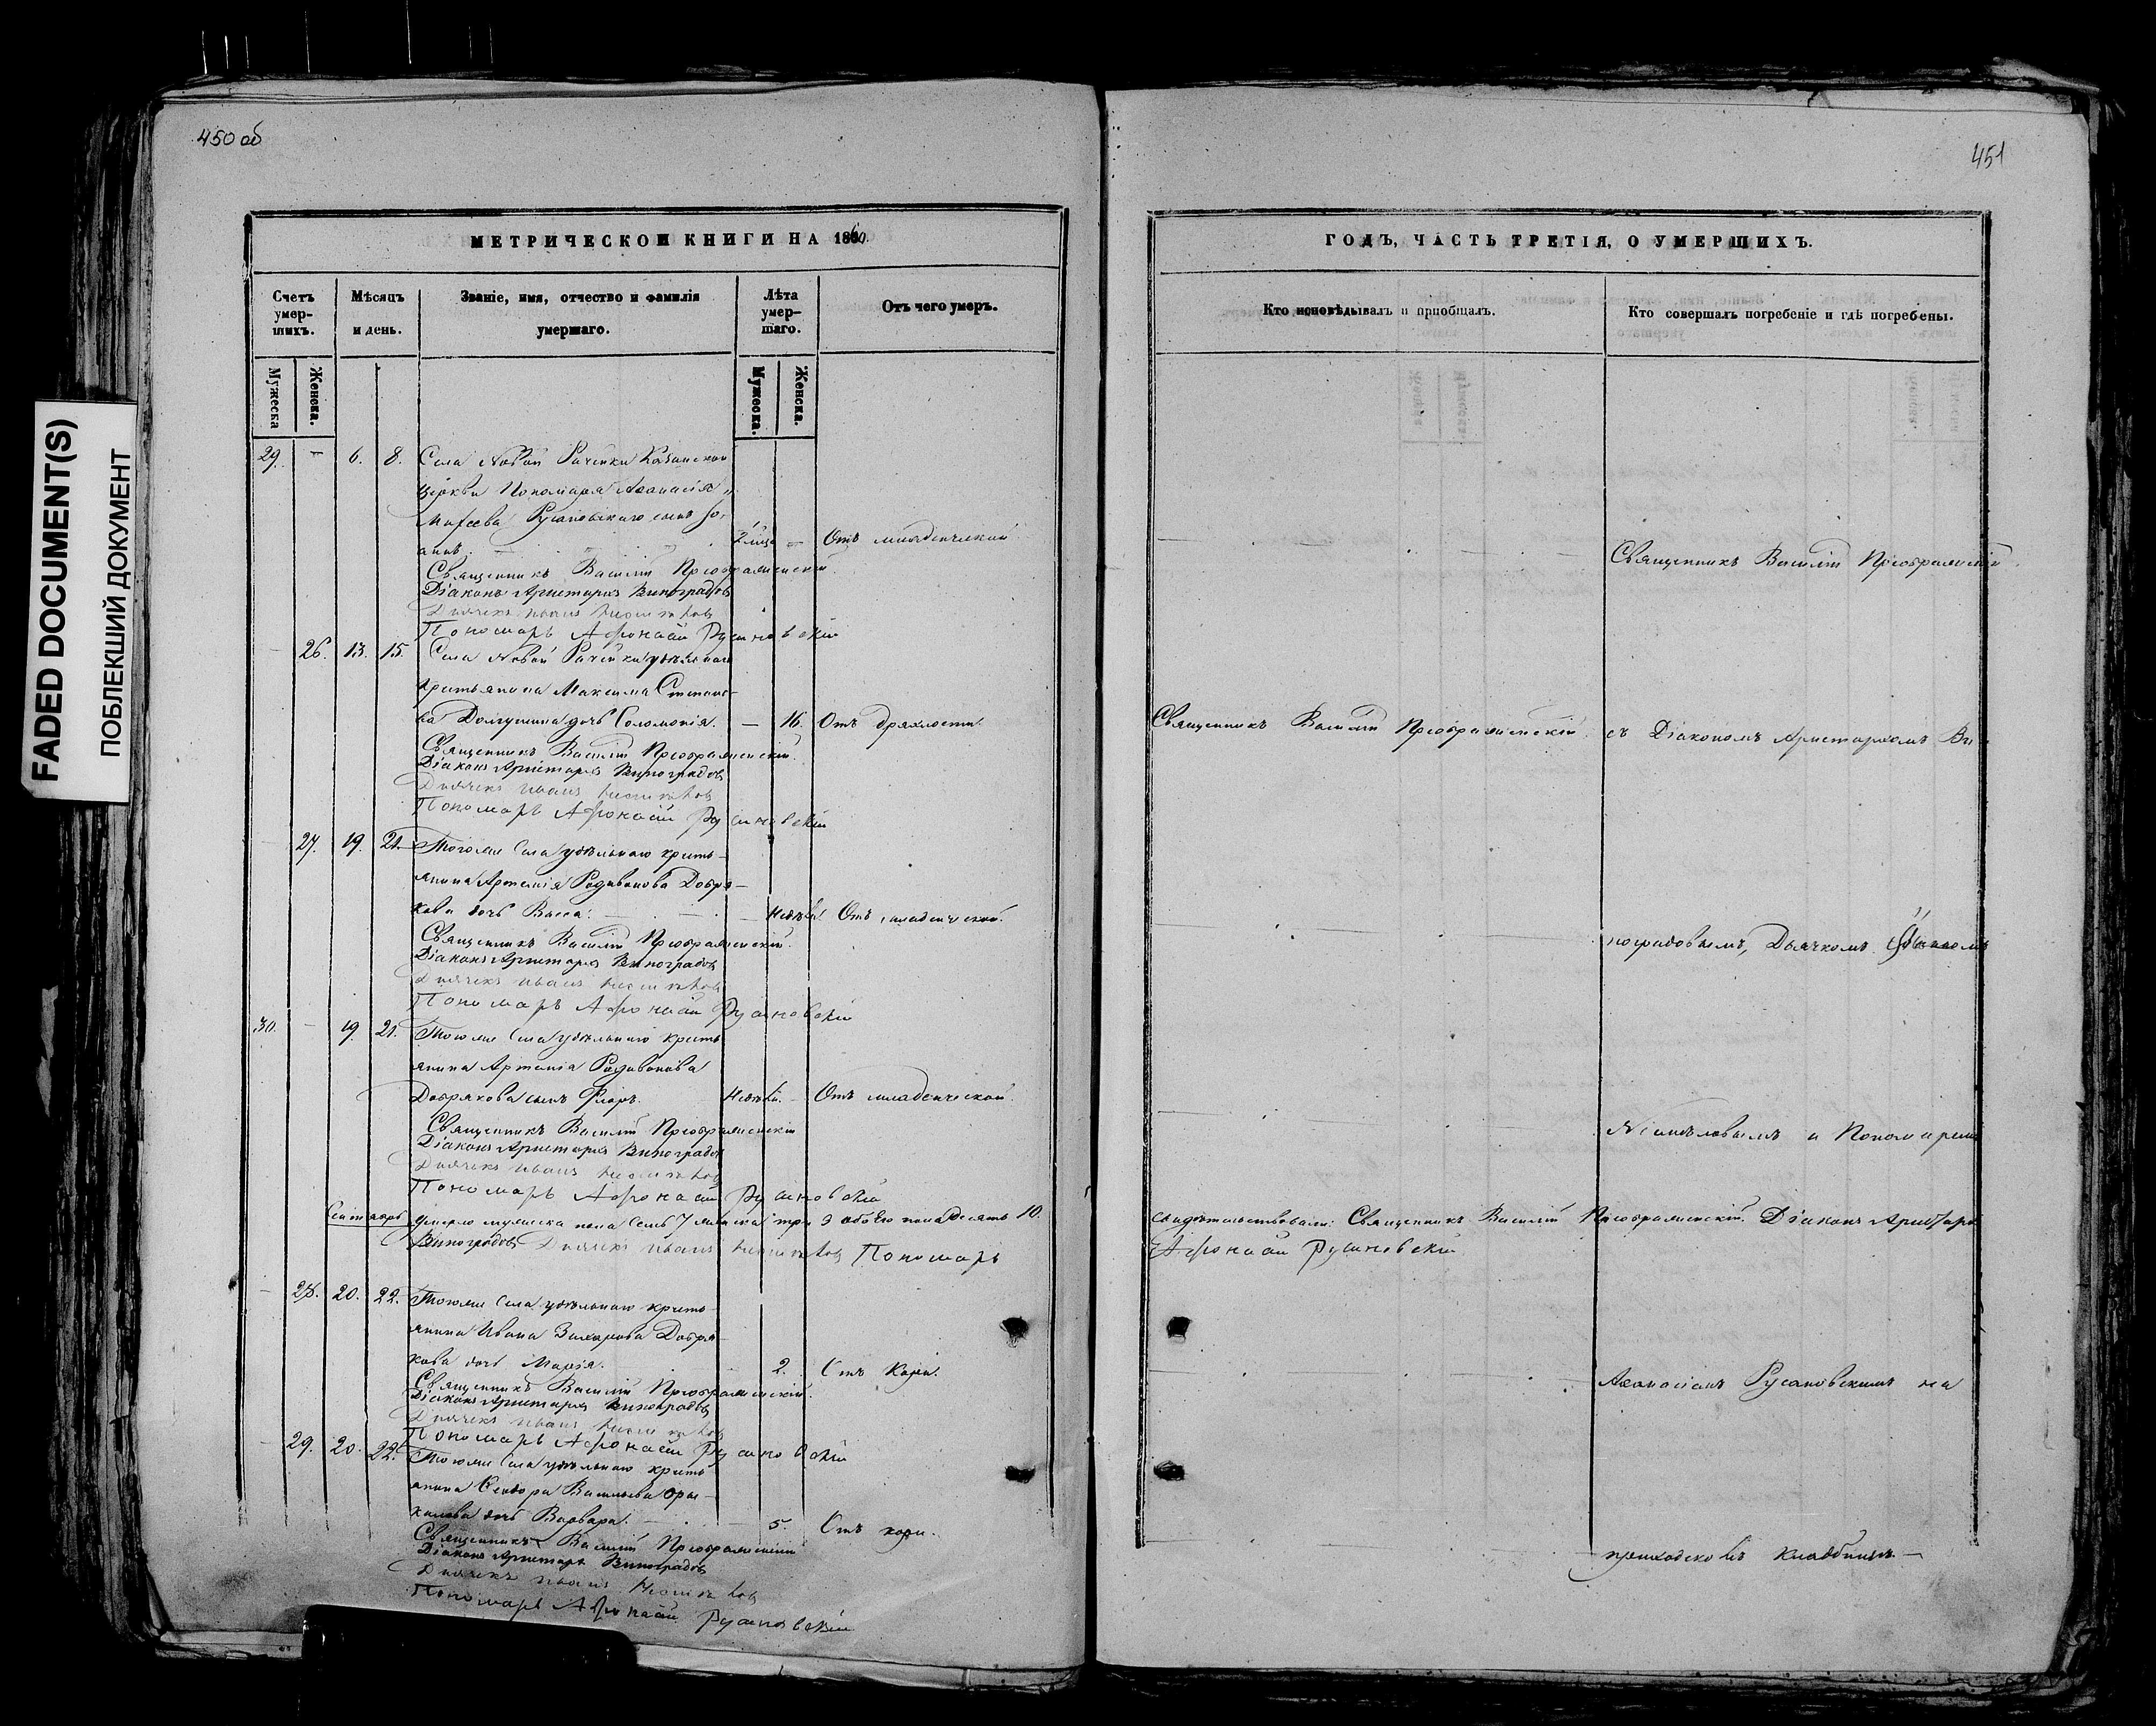 450 об
МЕТРИЧЕСКОЙ КНИГИ НА 1860.
Счетъ умер-
шихъ.
Мѣсяцъ
и день.
Званіе, имя, отчество и фамилія
умершаго.
Лѣта
умер-
шаго.
Отъ чего умеръ.
Мужеска
Женска.
Мужеска.
Женска.
29. – 6. 8. Села Новой Рачейки Казанской
Церкви Пономаря Аѳанасія
Русановскаго сынъ Іо-
аннъ. – Отъ младенческой
Священникъ Василій Преображенскій
Діаконъ Аристархъ Виноградовъ
Дьячекъ Иванъ
Пономарь Афонасій Русановскій
– 26. 13. 15. Села Новой Рачейки удѣльнаго
крестьянина Максима Степано-
ва Долгушина дочь Соломонія. – 16. Отъ дряхлости
Священникъ Василій Преображенскій.
Діаконъ Аристархъ Виноградовъ
Дьячекъ Иванъ
Пономарь Афонасій Русановскій
– 27. 19. 21. Тогоже села удѣльнаго кресть-
янина Артемія Родивонова Добря-
кова дочь Васса. – Отъ младенческой.
Священникъ Василій Преображенскій.
Діаконъ Аристархъ Виноградовъ
Дьячекъ Иванъ
Пономарь Афонасій Русановскій
30. – 19. 21. Тогоже села удѣльнаго кресть
янина Артемія Родивонова
Добрякова сынъ Флоръ. – Отъ младенческой.
Священникъ Василій Преображенскій
Діаконъ Аристархъ Виноградовъ
Дьячекъ Иванъ
Пономарь Афонасій Русановскій
умерло мужеска пола семь 7 женска три 3 обоего пола десять 10.
Виноградовъ Дьячекъ Иванъ Пономарь
– 28. 20. 22. Тогоже села удѣльнаго кресть
янина Ивана Захарова Добря-
кова дочь Марія. – 2. Отъ кори.
Священникъ Василій Преображенскій.
Діаконъ Аристархъ Виноградовъ
Дьячекъ Иванъ
Пономарь Афонасій Русановскій
– 29. 20. 22. Тогоже села удѣльнаго кресть
янина Васильева
дочь Варвара. – 5. Отъ кори.
Священникъ Василій Преображенскій
Діаконъ Аристархъ Виноградовъ
Дьячекъ Иванъ
Пономарь Афонасій Русановскій
451
ГОДЪ, ЧАСТЬ ТРЕТІЯ, О УМЕРШИХЪ.
Кто исповѣдывалъ и пріобщалъ.
Кто совершалъ погребеніе и гдѣ погребены.
Священникъ Василій Преображенскій
Священникъ Василій Преображенскій. съ Діакономъ Аристархомъ Ви-
ноградовымъ, Дьячкомъ
и Пономаремъ
свидѣтельствовали: Священникъ Василій Преображенскій. Діаконъ Аристархъ
Афонасій Русановскій
Аѳанасіемъ Русановскимъ на
приходскомъ кладбищѣ. –
FADED DOCUMENT(S)
ПОБЛЕКШИЙ ДОКУМЕНТ